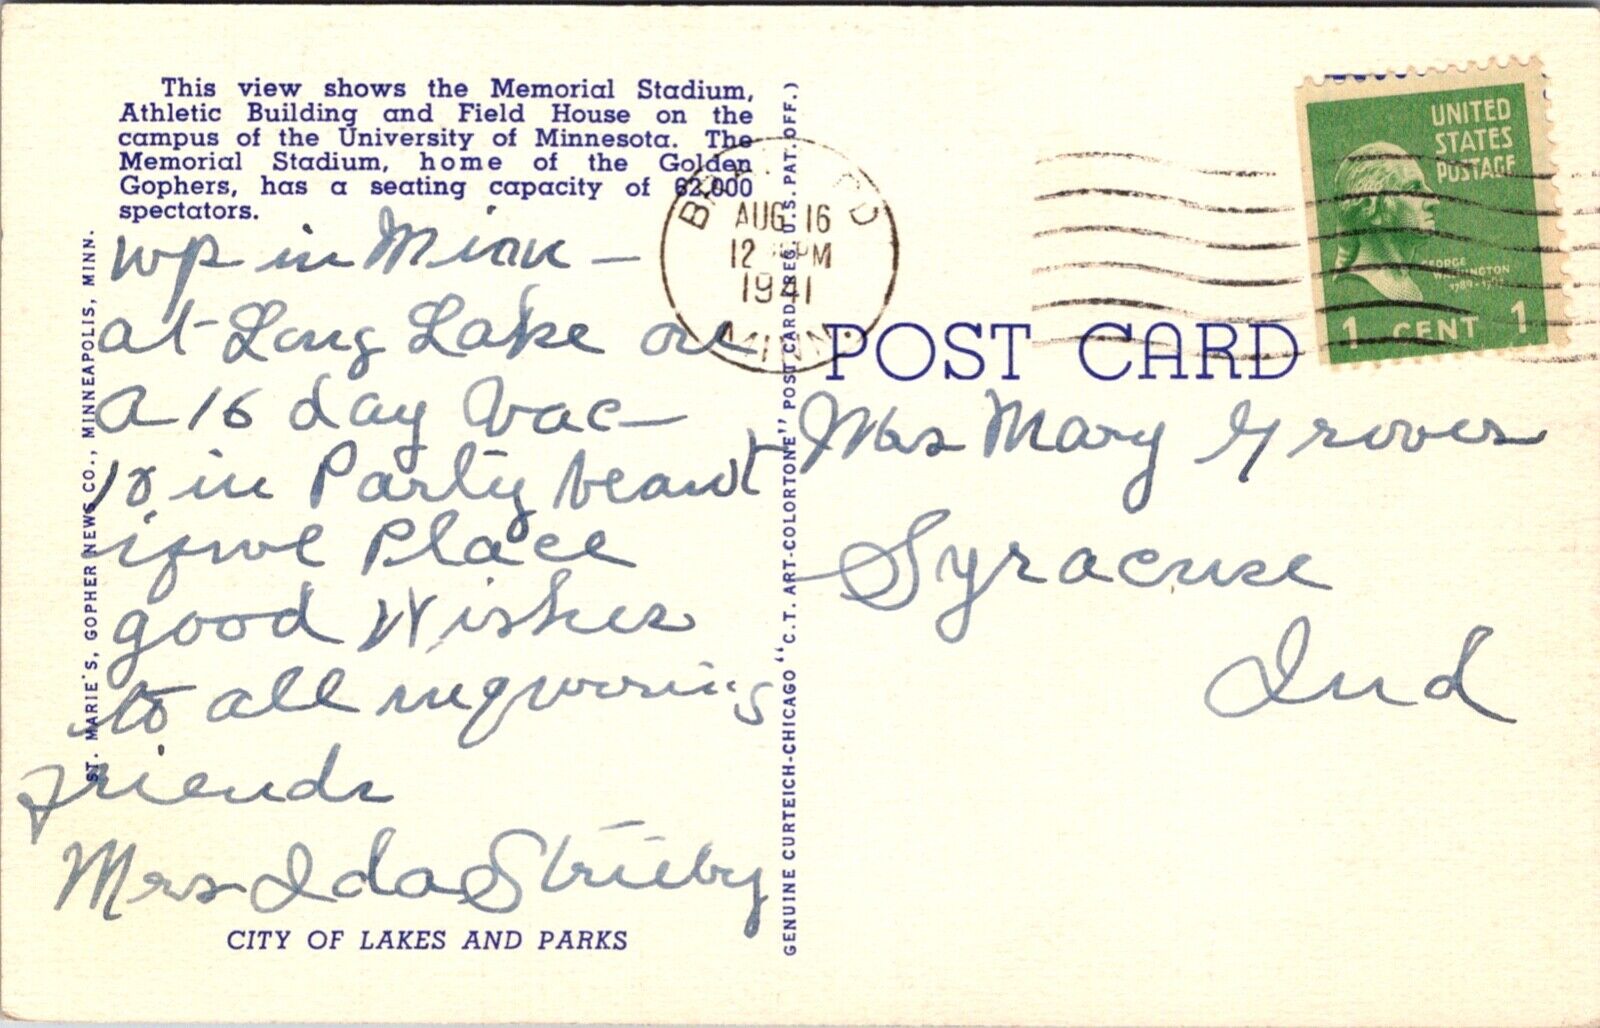 This view shows the Memorial Stadium,
Athletic Building and Field House on the
campus of the University of Minnesota. The
Memorial Stadium, home of the Golden
Gophers, has a seating capacity of 62,000
spectators.
wp in Minn –
at Long Lake on
a 16 day vac–
10 in Party beaut
iful Place
good Wishes
to all inquiring
friends
Mrs Ida Strieby
CITY OF LAKES AND PARKS
ST. MARIE'S, GOPHER NEWS CO., MINNEAPOLIS, MINN.
GENUINE CURTEICH-CHICAGO "C.T. ART-COLORTONE" POST CARD (REG. U.S. PAT. OFF.)
AUG 16
12 PM
1941
MINN.
POST CARD
UNITED
STATES
POSTAGE
GEORGE
WASHINGTON
1789-1797
1 CENT 1
Mrs Mary Grover
Syracuse
Ind